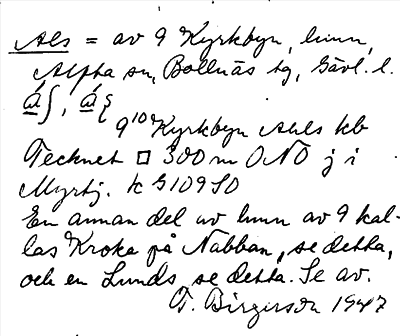 Als = av 9 Kyrkbyn, hmn,
Alfta sn, Bollnäs tg, Gävl. l.
á∫, á
9¹⁰ Kyrkbyn Ahls kb
Tecknet □ 300 m ONO j i
Myrtj. k G109 SO
En annan del av hmn av 9 kal-
las Kroka på Nabban, se detta,
och en Lunds, se detta. Se av.
T. Birgerson 1947